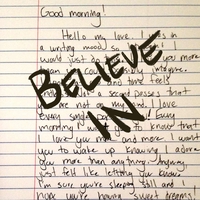 Good morning!
Hello my love. I in
a writing mood so
would just you more
than you could possibly imagine.
and feels
a second passes that
are not on my mind. I love
every single Every
morning to know that
I love you more and more. I want
you to wake up knowing I adore
you more than anything. Anyway,
just felt like letting you know.
I'm sure you're sleeping still and I
hope you're having sweet dreams!
BELIEVE
IN